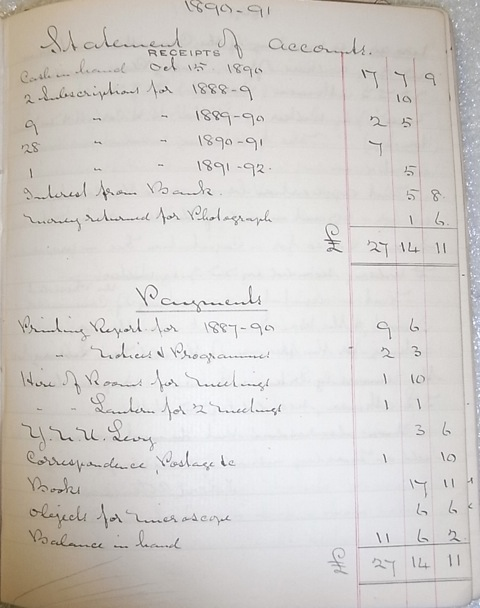 1890-91
Statement of accounts.
RECEIPTS
Cash in hand Oct 15 1890 17 7 9
2 Subscriptions for 1888-9 10
9 " " 1889-90 2 5
28 " " 1890-91 7
1 " " 1891-92. 5
Interest from Bank. 5 8
Money returned for Photograph 1 6
£ 27 14 11
Payments
Printing Report for 1887-90 9 6
" Notices & Programmes 2 3
Hire of Rooms for Meetings 1 10
" " Lantern for 2 Meetings 1 1
Y.N.U. Levy 3 6
Correspondence Postage &c 1 10
Books 17 11
Objects for Microscope 6 6
Balance in hand 11 6 2
£ 27 14 11